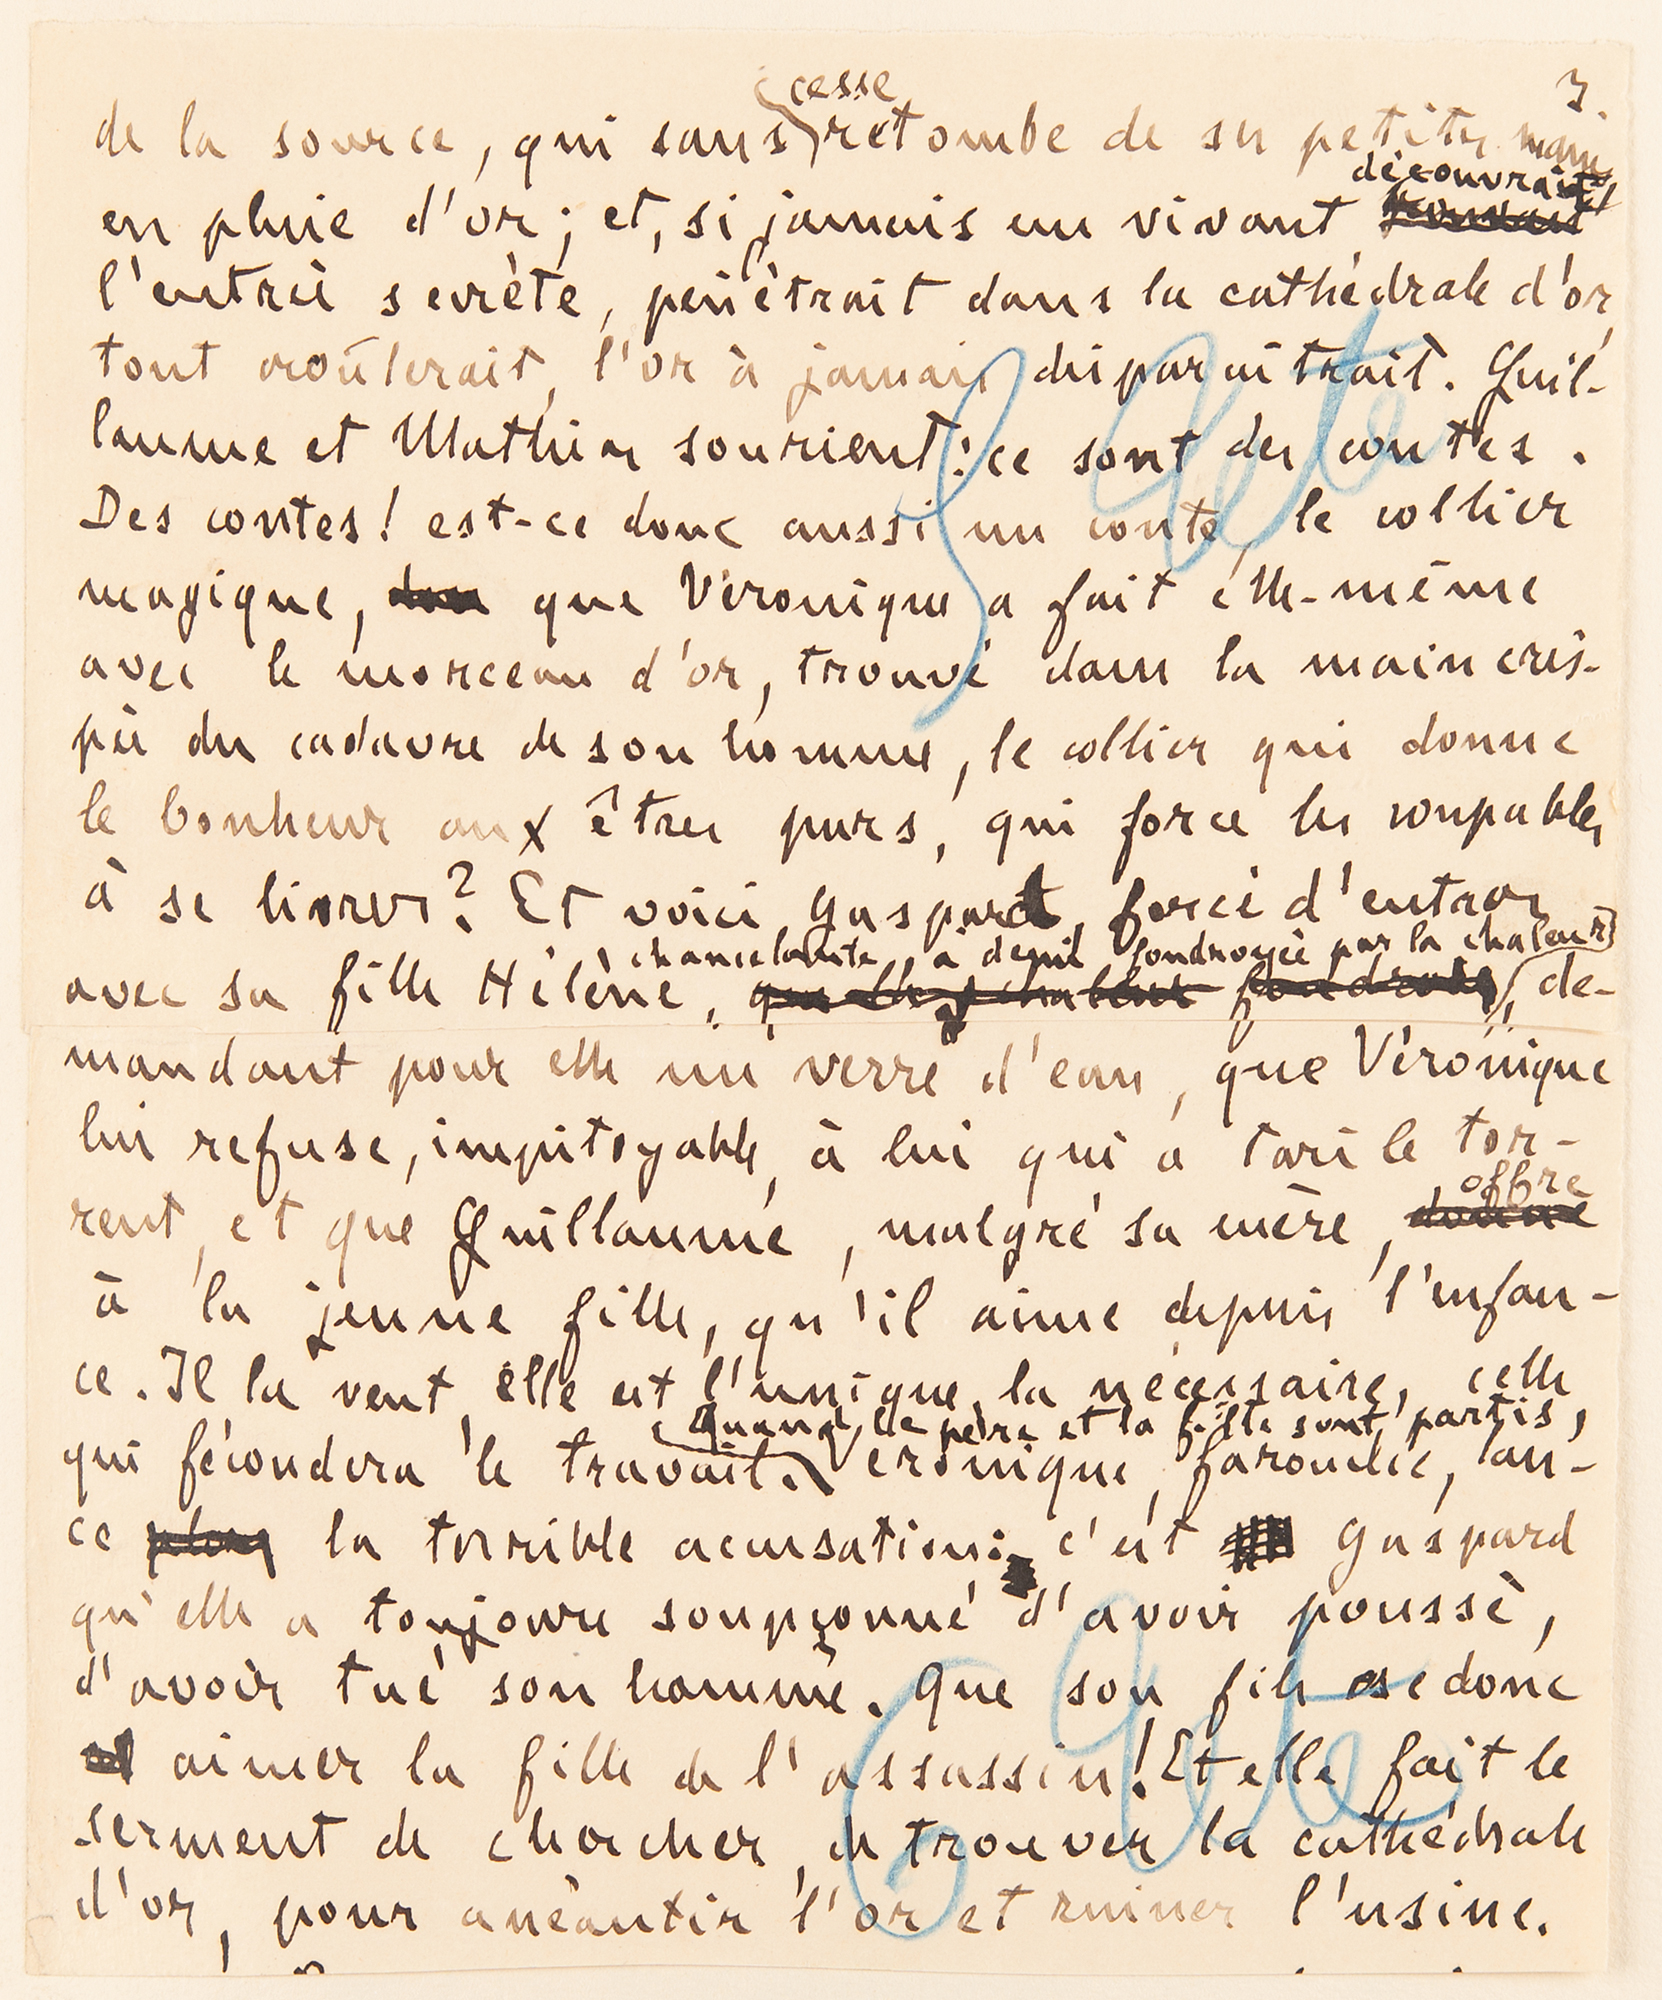 3.
cesse
de la source, qui sans retombe de ses petites mains
découvrait
en pluie d'or; et, si jamais un vivant
l'entrée secrète, pénétrait dans la cathédrale d'or,
tout croûlerait, l'or à jamais disparaîtrait. Guil-
laume et Mathias sourient: ce sont des contes.
Des contes! est-ce donc aussi un conte, le collier
magique, que Véronique a fait elle-même
avec le morceau d'or, trouvé dans la main cris-
pée du cadavre de son homme, le collier qui donne
le bonheur aux êtres purs, qui force les coupables
à se livrer? Et voici Gaspard, forcé d'entrer
chancelante, à demi foudroyée par la chaleur,
avec sa fille Hélène, de-
mandant pour elle un verre d'eau, que Véronique
lui refuse, impitoyable, à lui qui a tari le tor-
offre
rent, et que Guillaume, malgré sa mère, donne
à la jeune fille, qu'il aime depuis l'enfan-
ce. Il la veut, elle est l'unique, la nécessaire, celle
Quand le père et la fille sont partis,
qui fécondera le travail. Véronique, farouche, lan-
ce la terrible accusation: c'est Gaspard
qu'elle a toujours soupçonné d'avoir poussé,
d'avoir tué son homme. Que son fils ose donc
aimer la fille de l'assassin! Et elle fait le
serment de chercher, de trouver la cathédrale
d'or, pour anéantir l'or et ruiner l'usine.